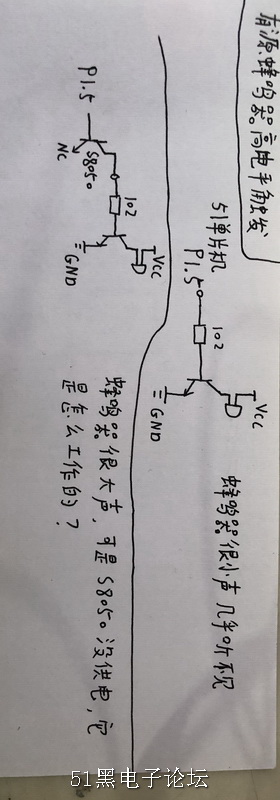 有源蜂鸣器。高电平触发
51单片机
P1.5
102
Vcc
GND
蜂鸣器很小声几乎听不见
P1.5
S8050
NC
102
Vcc
GND
蜂鸣器很大声，可是S8050没供电，它
是怎么工作的？
51黑电子论坛